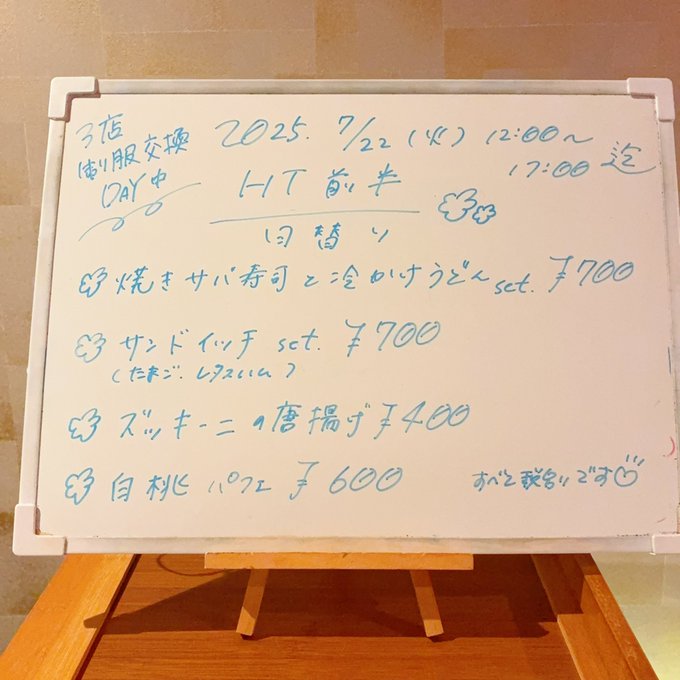 3店
制服交換
DAY中
2025. 7/22 (火) 12:00〜
17:00 迄
HT 前半
日替り
焼きサバ寿司と冷かけうどん set. ¥700
サンドイッチ set. ¥700
(たまご. レタスハム)
ズッキーニの唐揚げ ¥400
白桃パフェ ¥600
すべて税込りです